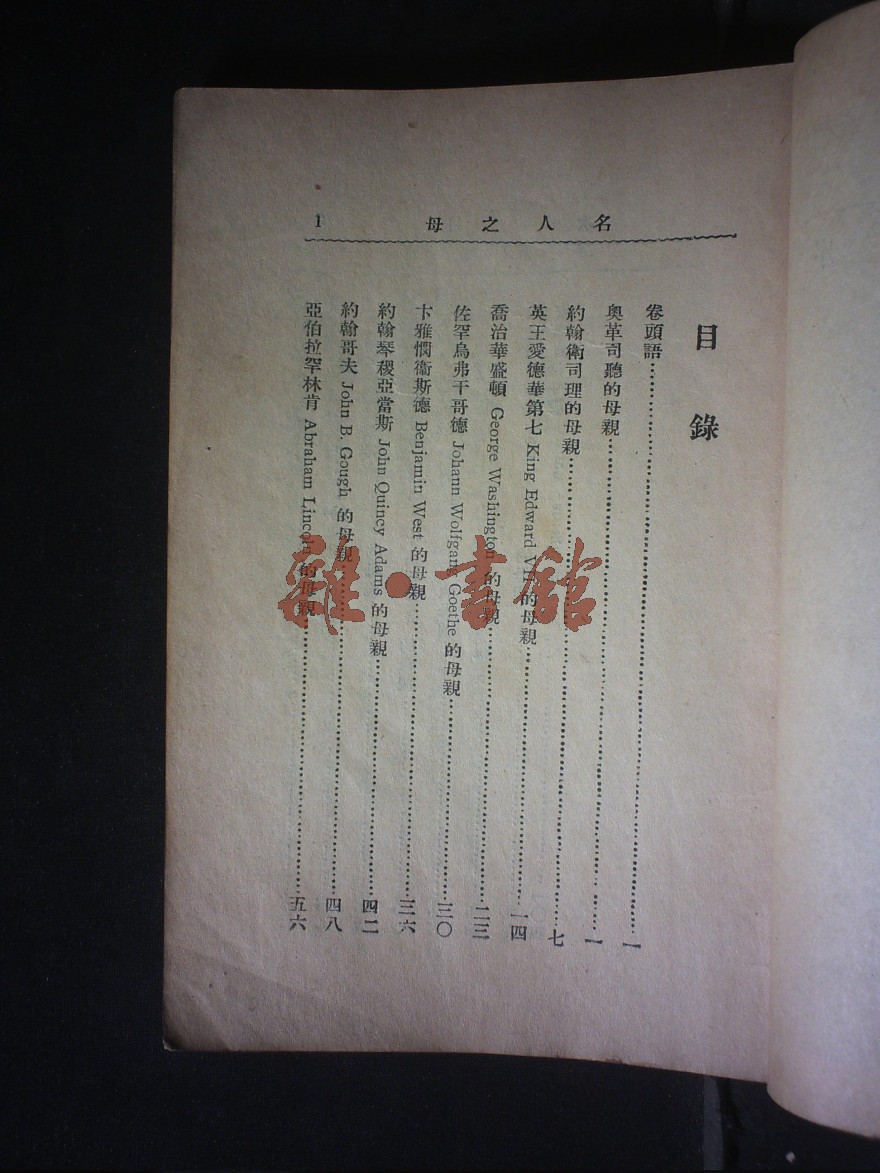 名人之母 1
目錄
卷頭語……一
奧革司聽的母親……一
約翰衛司理的母親……七
英王愛德華第七 King Edward VII 的母親……一四
喬治華盛頓 George Washington 的母親……二三
佐罕烏弗干哥德 Johann Wolfgang Goethe 的母親……三〇
卞雅憫衞斯德 Benjamin West 的母親……三六
約翰琴稷亞當斯 John Quincy Adams 的母親……四二
約翰哥夫 John B. Gough 的母親……四八
亞伯拉罕林肯 Abraham Lincoln 的母親……五六
雜·書館